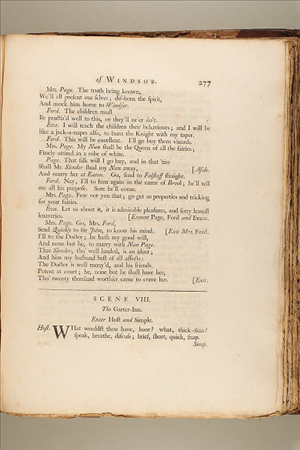 of WINDSOR. 277
Mrs. Page. The truth being known,
We'll all present our selves; dis-horn the spirit,
And mock him home to Windsor.
Ford. The children must
Be practis'd well to this, or they'll ne'er do't.
Eva. I will teach the children their behaviours; and I will be
like a jack-a-napes also, to burn the Knight with my taper.
Ford. This will be excellent. I'll go buy them vizards.
Mrs. Page. My Nan shall be the Queen of all the fairies;
Finely attired in a robe of white.
Page. That silk will I go buy, and in that 'tire
Shall Mr. Slender steal my Nan away, [Aside.
And marry her at Eaton. Go, send to Falstaff straight.
Ford. Nay, I'll to him again in the name of Brook; he'll tell
me all his purpose. Sure he'll come.
Mrs. Page. Fear not you that; go get us properties and tricking
for your fairies.
Eva. Let us about it, it is admirable pleasures, and ferry honest
knaveries. [Exeunt Page, Ford and Evans.
Mrs. Page. Go, Mrs. Ford,
Send Quickly to Sir John, to know his mind. [Exit Mrs. Ford.
I'll to the Doctor; he hath my good will,
And none but he, to marry with Nan Page.
That Slender, tho' well landed, is an ideot;
And him my husband best of all affects:
The Doctor is well mony'd, and his friends
Potent at court; he, none but he shall have her,
Tho' twenty thousand worthier came to crave her. [Exit.
SCENE VIII.
The Garter-Inn.
Enter Host and Simple.
Host. WHat wouldst thou have, boor? what, thick-skin?
speak, breathe, discuss; brief, short, quick, snap.
Simp.